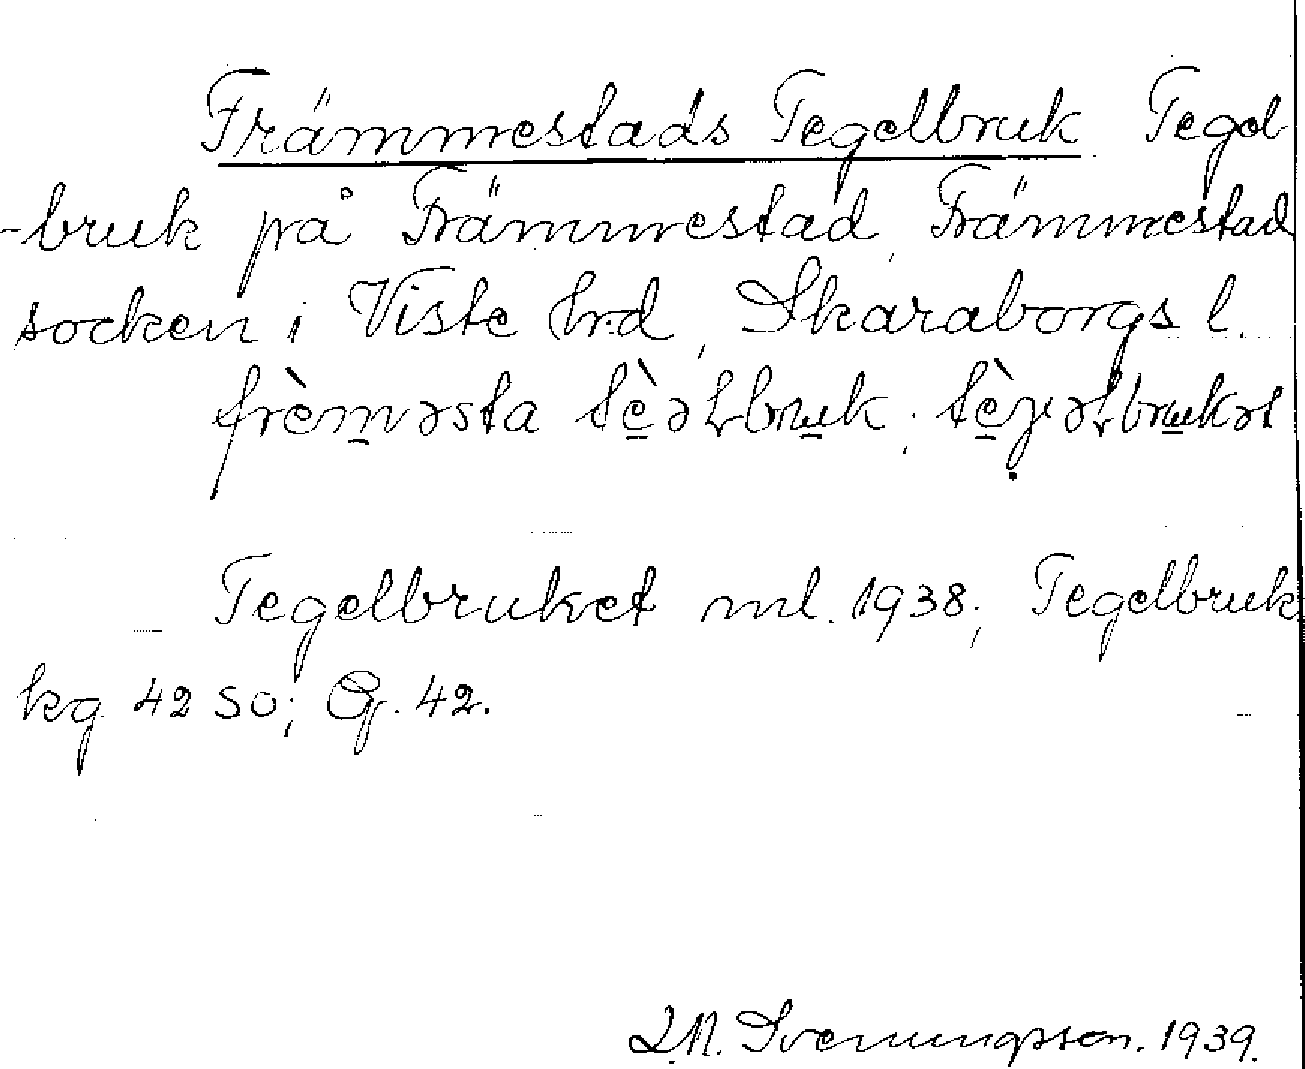 Främmestads Tegelbruk Tegel
-bruk på Främmestad, Främmestad
socken i Viste hrd, Skaraborgs l.
frèm̲əsta tè̲əɽbru̲k; tè̲γ̣əɽbru̲kət
Tegelbruket ml. 1938; Tegelbruk
kg 42 50; G. 42.
L.N. Svenungsson. 1939.